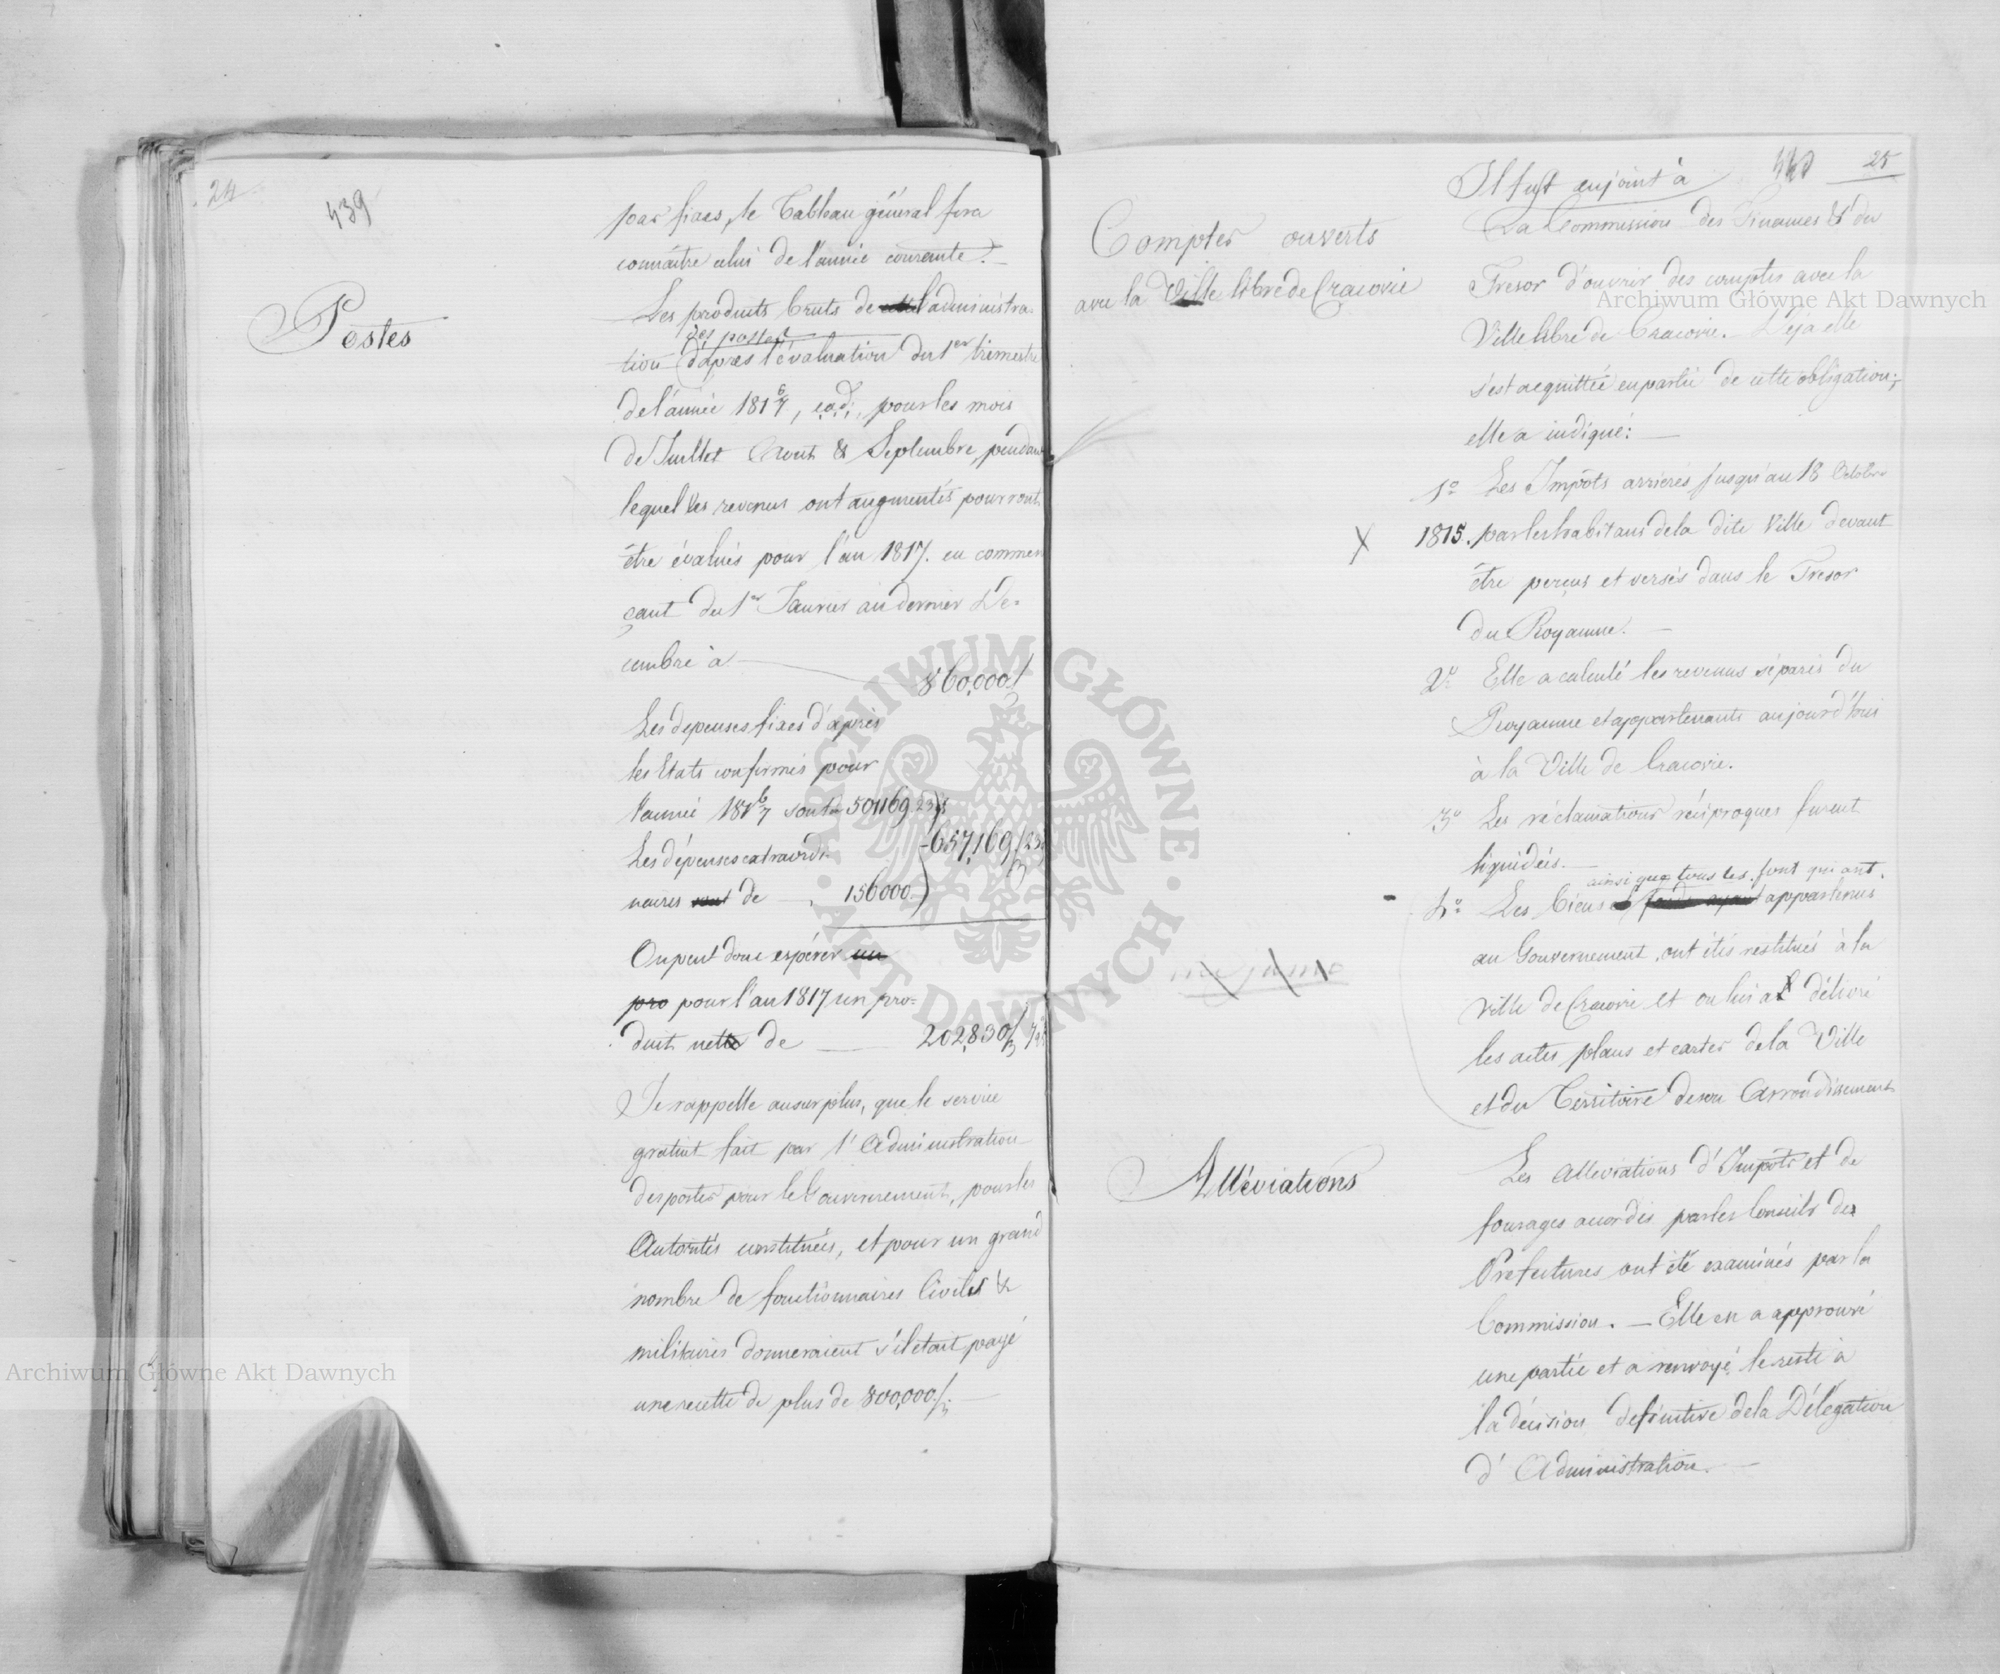 24
439
Postes
pas fixes, le Tableau général fera
connaitre celui de l'année courante.
Les produits bruts de l'administra-
des postes
tion d'après l'évaluation du 1er trimestre
de l'année 1816/7, c.a.d. pour les mois
de Juillet Aout & Septembre, pendant
lequel les revenus ont augmentés pourront
être évalués pour l'an 1817. en commen
çant du 1er Janvier au dernier De-
cembre à
860,000 f
Les depenses fixes d'après
les Etats confirmés pour
l'année 1816/7 sont de 501169.23
Les dépenses extraordi-
naires sont de 156000
657,169 f 23
On peut donc espérer un
pro pour l'an 1817 un pro-
duit nette de 202,830 f 7
Je rappelle au surplus, que le service
gratuit fait par l'Administration
des postes pour le Gouvernement, pour les
Autorités constituées, et pour un grand
nombre de fonctionnaires Civils &
militaires donneraient s'il etait payé
une recette de plus de 800,000 f
440
25
Comptes ouverts
avec la Ville libre de Cracovie
Il fust enjoint à
La Commission des Finances & du
Tresor d'ouvrir des comptes avec la
Ville libre de Cracovie. Déja elle
s'est acquittée en partie de cette obligation;
elle a indiqué:
1o Les Impôts arrierés jusqu'au 18 Octobre
X 1815. par les habitans de la dite Ville devant
être perçus et versés dans le Tresor
du Royaume.
2o Elle a calculé les revenus séparés du
Royaume et appartenants aujourd'hui
à la Ville de Cracovie.
3o Les réclamations réciproques furent
liquidées.
ainsi que tous les font qui ont
4o Les biens appartenus
au Gouvernement, ont étés restitués à la
Ville de Cracovie et on lui a délivré
les actes plans et cartes de la Ville
et du Territoire de son Arrondissement
Alléviations
Les Alleviations d'Impôts et de
fourages accordés par les Conseils de
Prefectures ont été examinés par la
Commission. — Elle en a approuvé
une partie et a renvoyé le reste à
la décision definitive de la Délégation
d'Administration.
Archiwum Główne Akt Dawnych
Archiwum Główne Akt Dawnych
ARCHIWUM GŁÓWNE AKT DAWNYCH